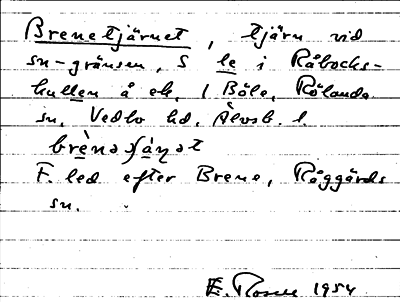 Brenetjärnet, tjärn vid
sn-gränsen, S le i Råbocks-
kullen å ek. 1 Bäle, Rölanda
sn. Vedbo hd. Älvsb. l.
F. led efter Brene, Råggärds
sn.
E. 1954